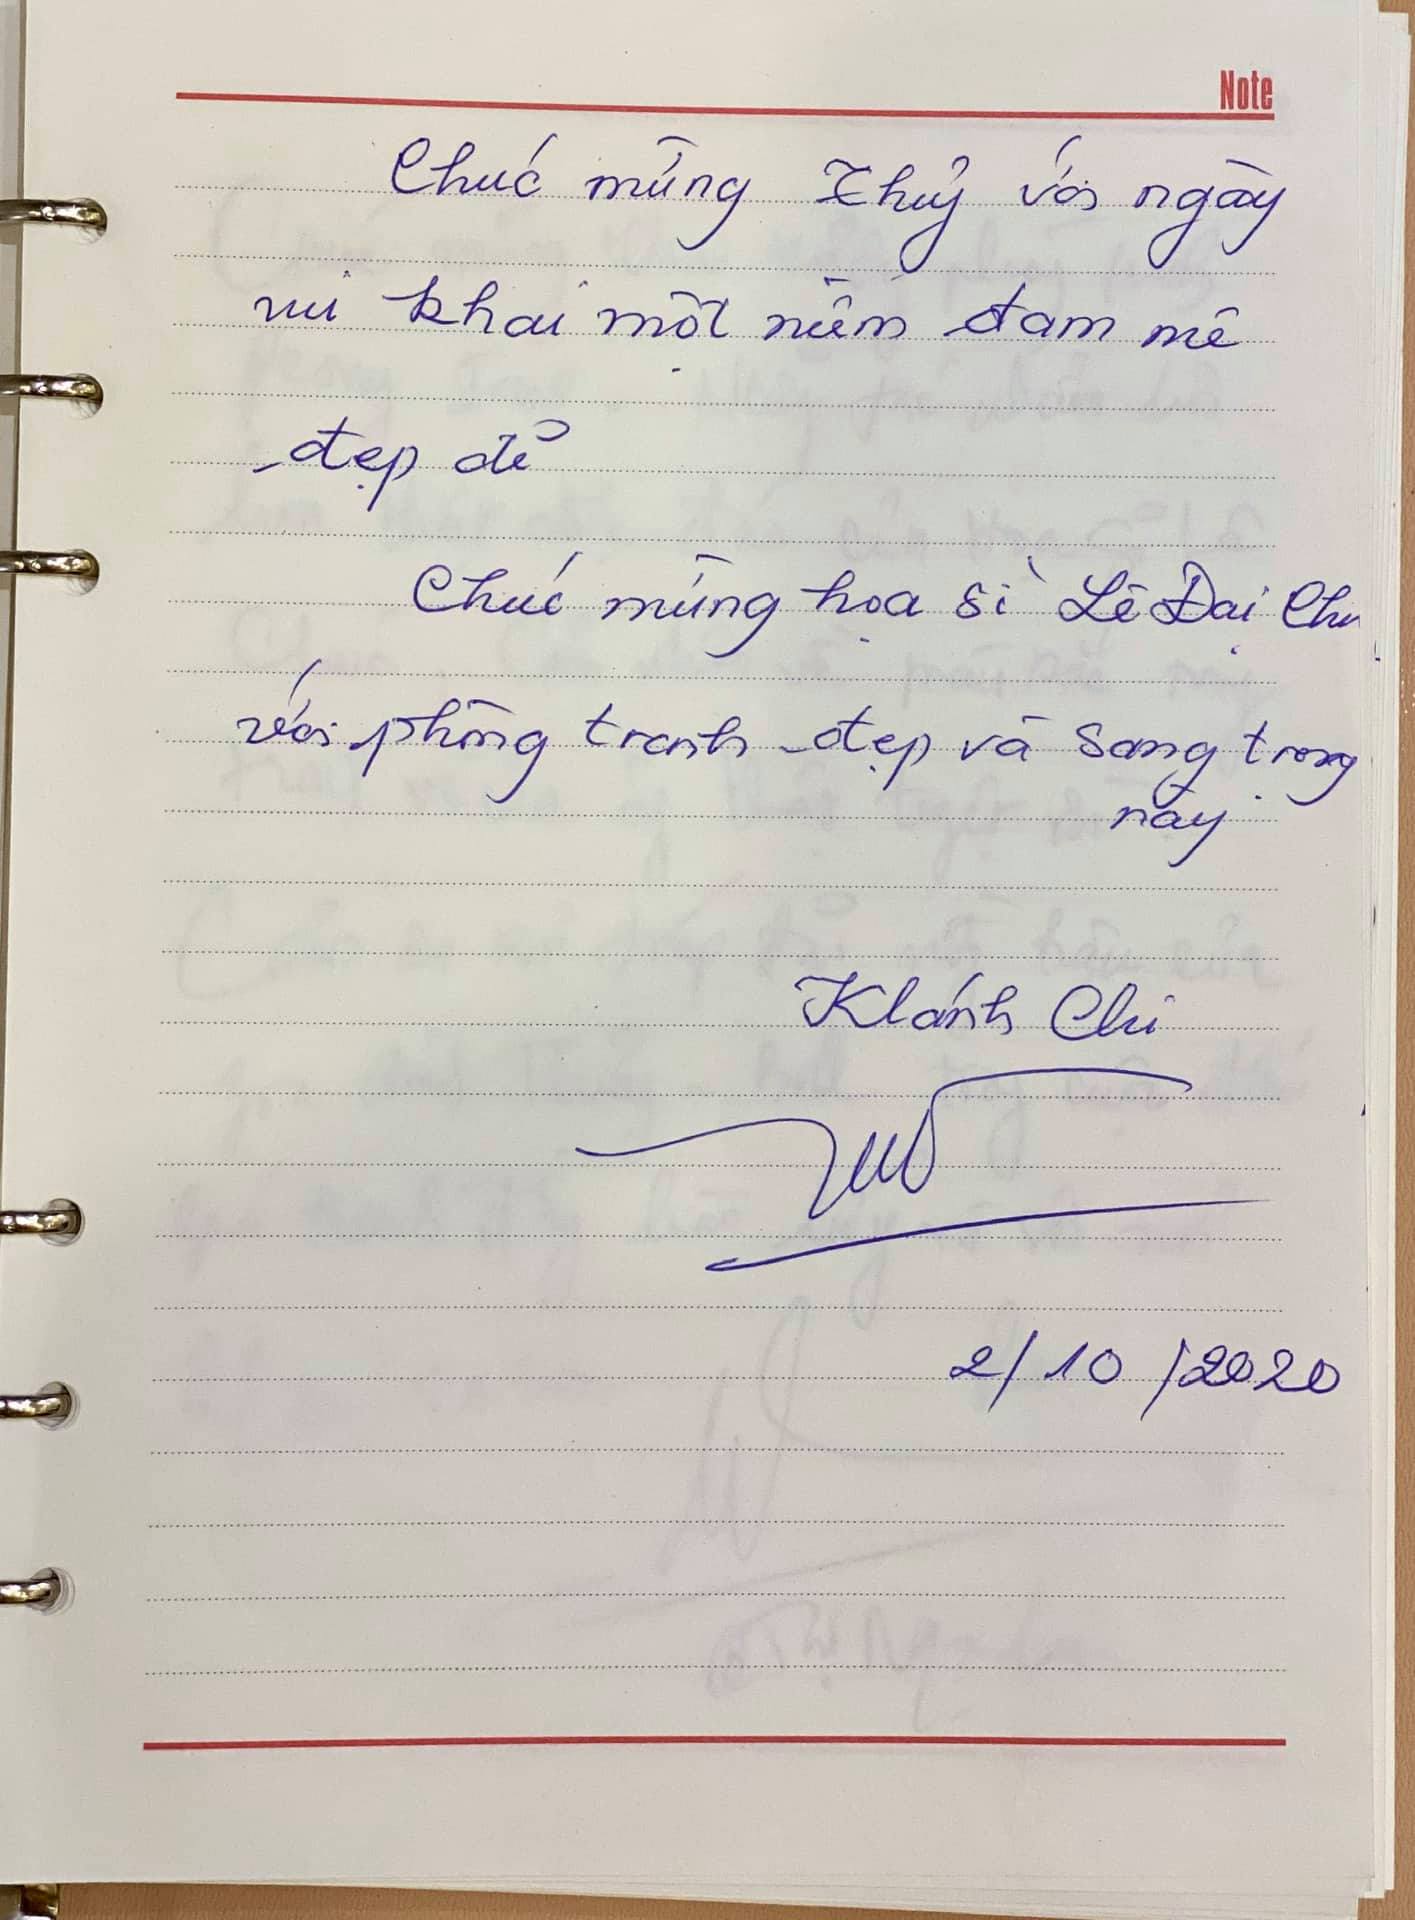 Note
Chúc mừng Thuỷ với ngày
vui khai một niềm đam mê
đẹp đẽ
Chúc mừng họa sĩ Lê Đại Chu
với phòng tranh đẹp và sang trọng
này
Khánh Chi
2/10/2020